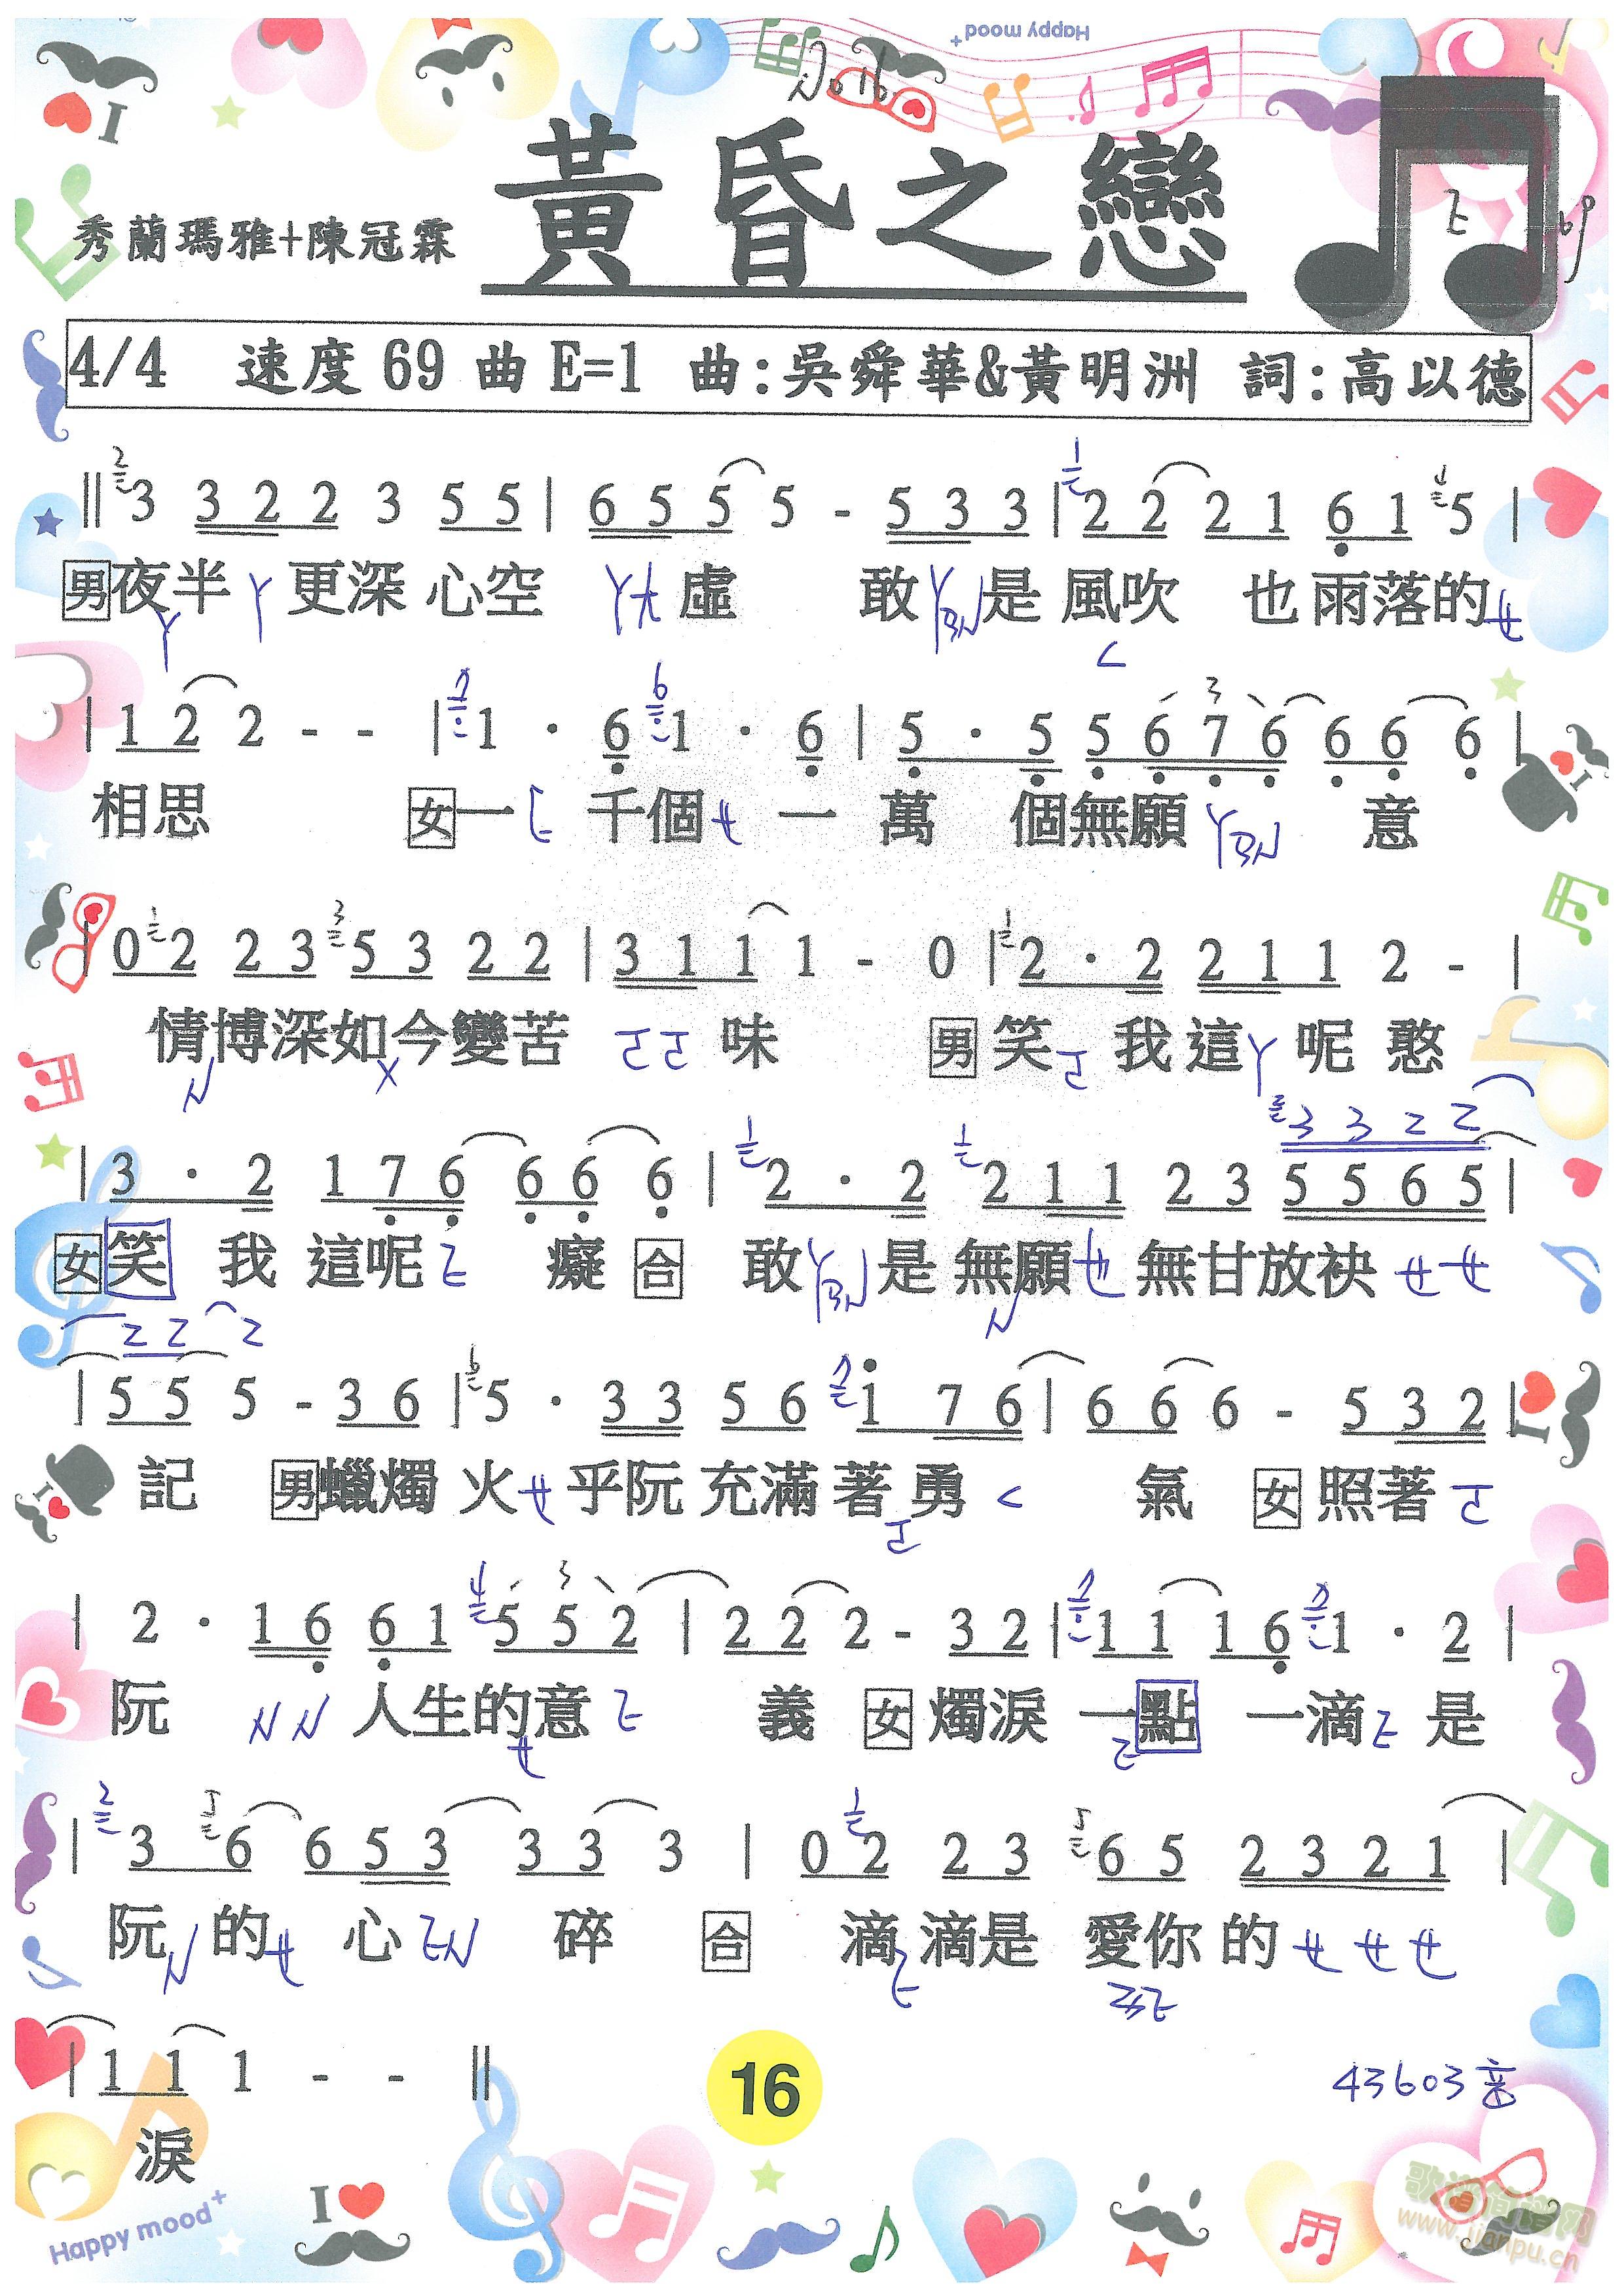 Happy mood+
No 16
I
黃昏之戀
秀蘭瑪雅+陳冠霖
E 69
4/4 速度 69 曲 E=1 曲:吳舜華&黃明洲 詞:高以德
2 3 3 2 2 3 5 5 | 6 5 5 5 - 5 3 3 | 1 2 2 2 1 6 1 5 |
男夜半 ㄚ 更深 心空 ㄚㄤ 虛 敢 ㄚㄇㄣ 是 風吹 也 雨落的 ㄝ
ㄚ ㄑ
| 1 2 2 - - | 7 1 · 6 6 1 · 6 | 5 · 5 5 6 7 6 6 6 6 |
3
相思 女一 ㄛ 千個 ㄝ 一 萬 個無願 ㄚㄇㄣ 意
| 0 1 2 2 3 3 5 3 2 2 | 3 1 1 1 - 0 | 1 2 · 2 2 1 1 2 - |
情博深如今變苦 ㄛㄛ 味 男 笑 ㄛ 我 這 ㄚ 呢 憨
ㄣ ㄨ
2 3 3 2 2
| 3 · 2 1 7 6 6 6 6 | 1 2 · 2 1 2 1 1 2 3 5 5 6 5 |
女 笑 我 這呢 ㄛ 癡 合 敢 ㄚㄇㄣ 是 無願 ㄝ 無甘放袂 ㄝ ㄝ
ㄣ
2 2 2
| 5 5 5 - 3 6 | 6 5 · 3 3 5 6 7 1 7 6 | 6 6 6 - 5 3 2 |
記 男 蠟燭 火 ㄝ 乎阮 充滿 著 勇 ㄑ 氣 女 照著 ㄛ
ㄛ
| 2 · 1 6 6 1 4 5 5 2 | 2 2 2 - 3 2 | 7 1 1 1 6 7 1 · 2 |
3
阮 ㄣㄣ 人生的意 ㄧ 義 女 燭淚 一點 一滴 ㄧ 是
ㄝ
| 2 3 6 6 5 3 3 3 3 | 0 1 2 2 3 5 6 5 2 3 2 1 |
阮 ㄣ 的 ㄝ 心 ㄣ 碎 合 滴 滴是 愛你 的 ㄝ ㄝ ㄝ
| 1 1 1 - - ‖
淚
16
43603音
Happy mood+
I
歌谱简谱网
www.jianpu.cn